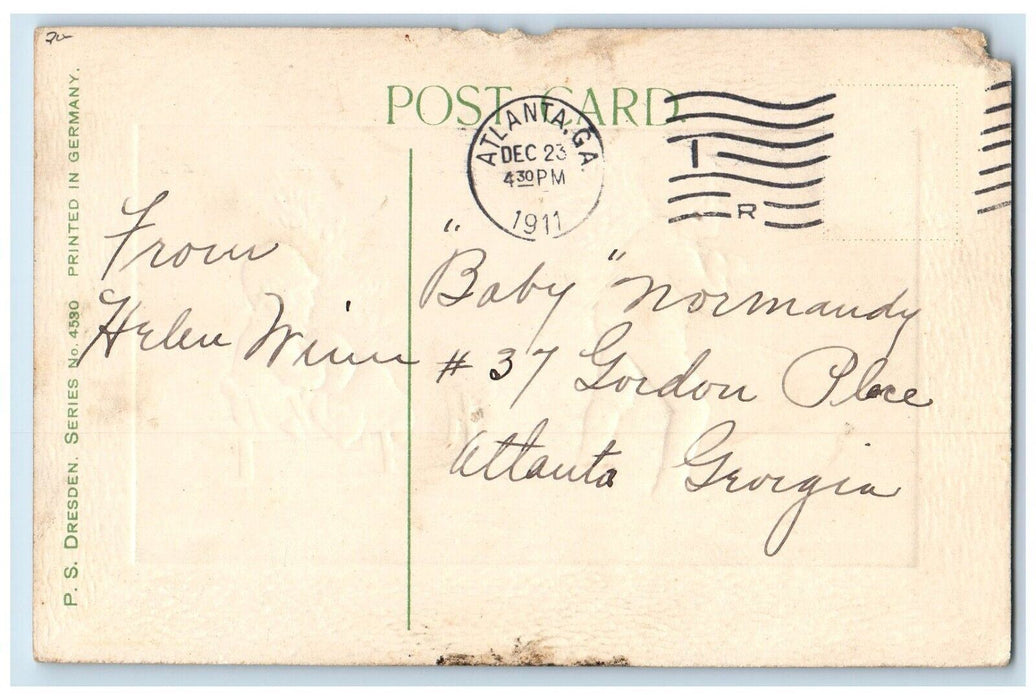 P. S. DRESDEN. SERIES No. 4530 PRINTED IN GERMANY.
POST CARD.
ATLANTA, GA.
DEC 23
4 30 PM
1911
1
R
From
Helen Winn
"Baby" Normandy
# 37 Gordon Place
Atlanta Georgia